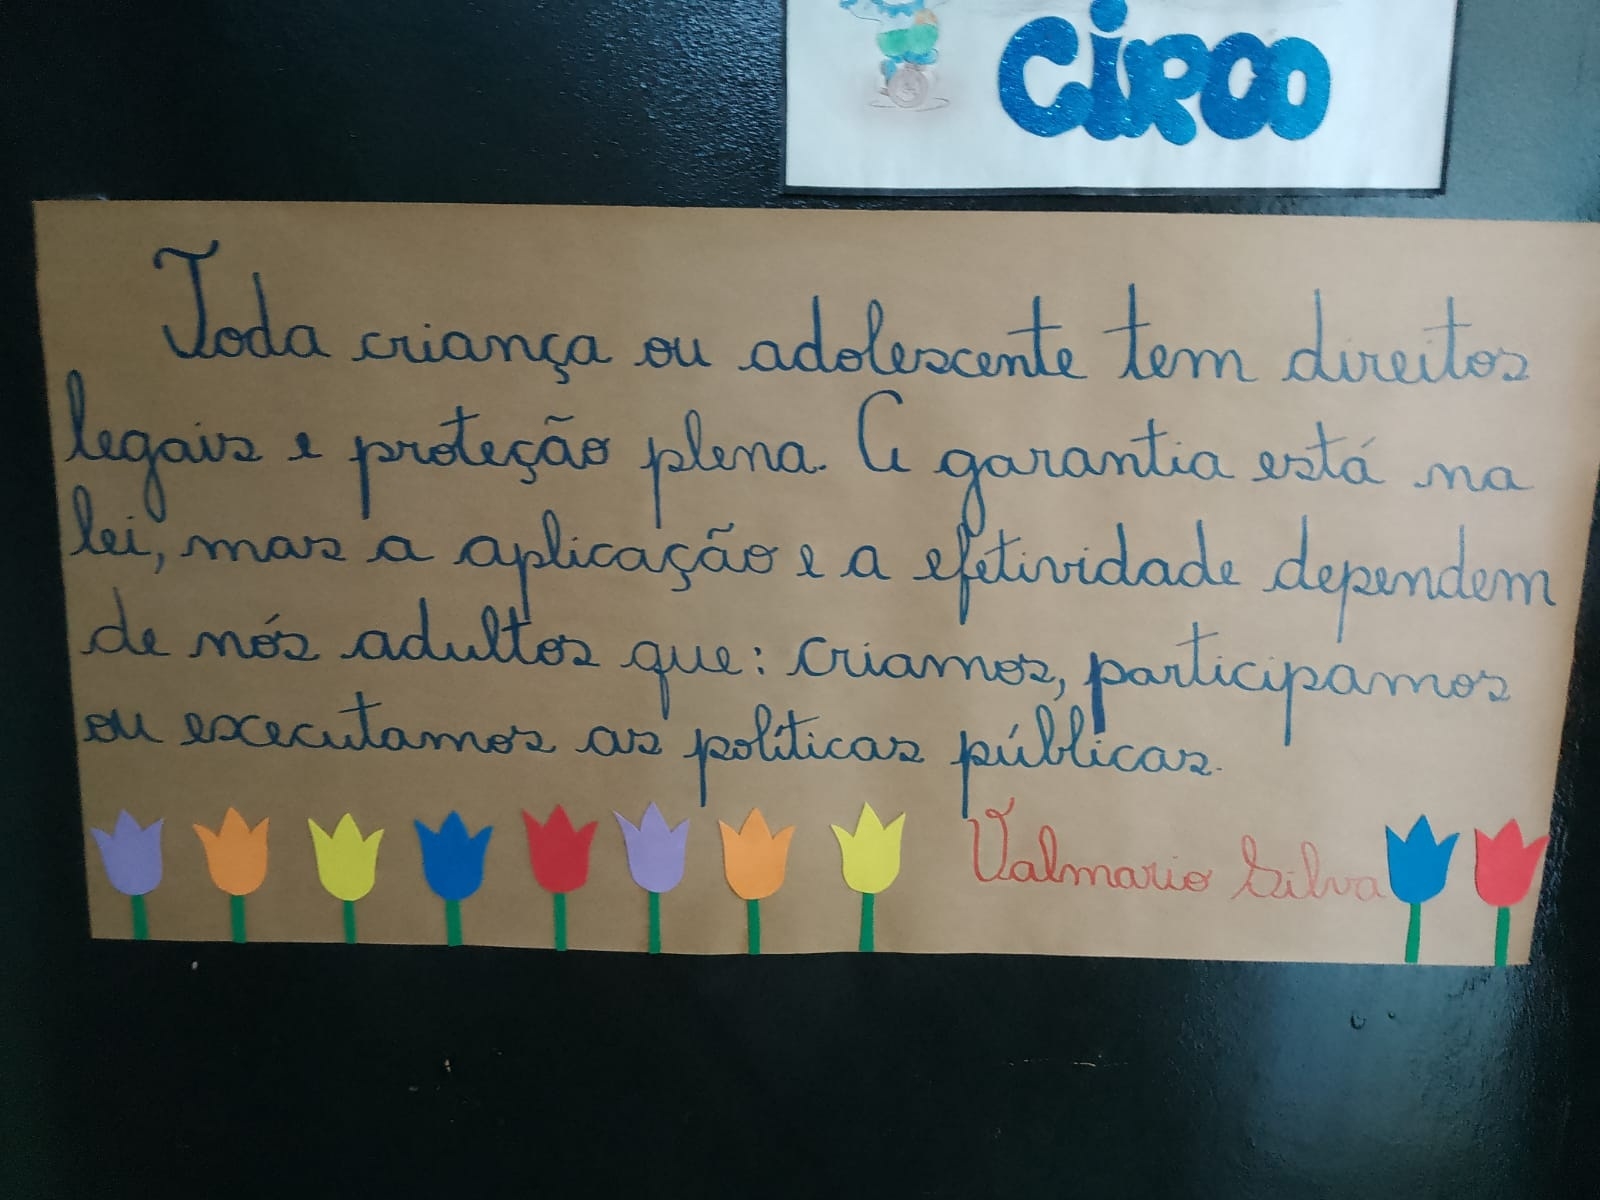 CIRCO
Toda criança ou adolescente tem direitos
legais e proteção plena. A garantia está na
lei, mas a aplicação e a efetividade dependem
de nós adultos que: criamos, participamos
ou executamos as políticas públicas.
Valmario Silva